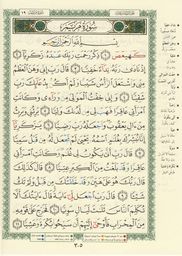 سُورَةُ مَرْيَمَ
بِسْمِ اللَّهِ الرَّحْمَٰنِ الرَّحِيمِ
كٓهيعٓصٓ ١ ذِكْرُ رَحْمَتِ رَبِّكَ عَبْدَهُۥ زَكَرِيَّآ ٢
إِذْ نَادَىٰ رَبَّهُۥ نِدَآءً خَفِيًّا ٣ قَالَ رَبِّ إِنِّي وَهَنَ ٱلْعَظْمُ
مِنِّي وَٱشْتَعَلَ ٱلرَّأْسُ شَيْبًا وَلَمْ أَكُنۢ بِدُعَآئِكَ رَبِّ
شَقِيًّا ٤ وَإِنِّي خِفْتُ ٱلْمَوَٰلِيَ مِن وَرَآءِي وَكَانَتِ
ٱمْرَأَتِي عَاقِرًا فَهَبْ لِي مِن لَّدُنكَ وَلِيًّا ٥ يَرِثُنِي وَيَرِثُ
مِنْ ءَالِ يَعْقُوبَ وَٱجْعَلْهُ رَبِّ رَضِيًّا ٦ يَٰزَكَرِيَّآ إِنَّا
نُبَشِّرُكَ بِغُلَٰمٍ ٱسْمُهُۥ يَحْيَىٰ لَمْ نَجْعَل لَّهُۥ مِن قَبْلُ سَمِيًّا ٧
قَالَ رَبِّ أَنَّىٰ يَكُونُ لِي غُلَٰمٌ وَكَانَتِ ٱمْرَأَتِي عَاقِرًا
وَقَدْ بَلَغْتُ مِنَ ٱلْكِبَرِ عِتِيًّا ٨ قَالَ كَذَٰلِكَ قَالَ
رَبُّكَ هُوَ عَلَيَّ هَيِّنٌ وَقَدْ خَلَقْتُكَ مِن قَبْلُ وَلَمْ تَكُ
شَيْـًٔا ٩ قَالَ رَبِّ ٱجْعَل لِّيٓ ءَايَةً قَالَ ءَايَتُكَ أَلَّا
تُكَلِّمَ ٱلنَّاسَ ثَلَٰثَ لَيَالٍ سَوِيًّا ١٠ فَخَرَجَ عَلَىٰ قَوْمِهِۦ
مِنَ ٱلْمِحْرَابِ فَأَوْحَىٰٓ إِلَيْهِمْ أَن سَبِّحُوا۟ بُكْرَةً وَعَشِيًّا ١١
٣٠٥